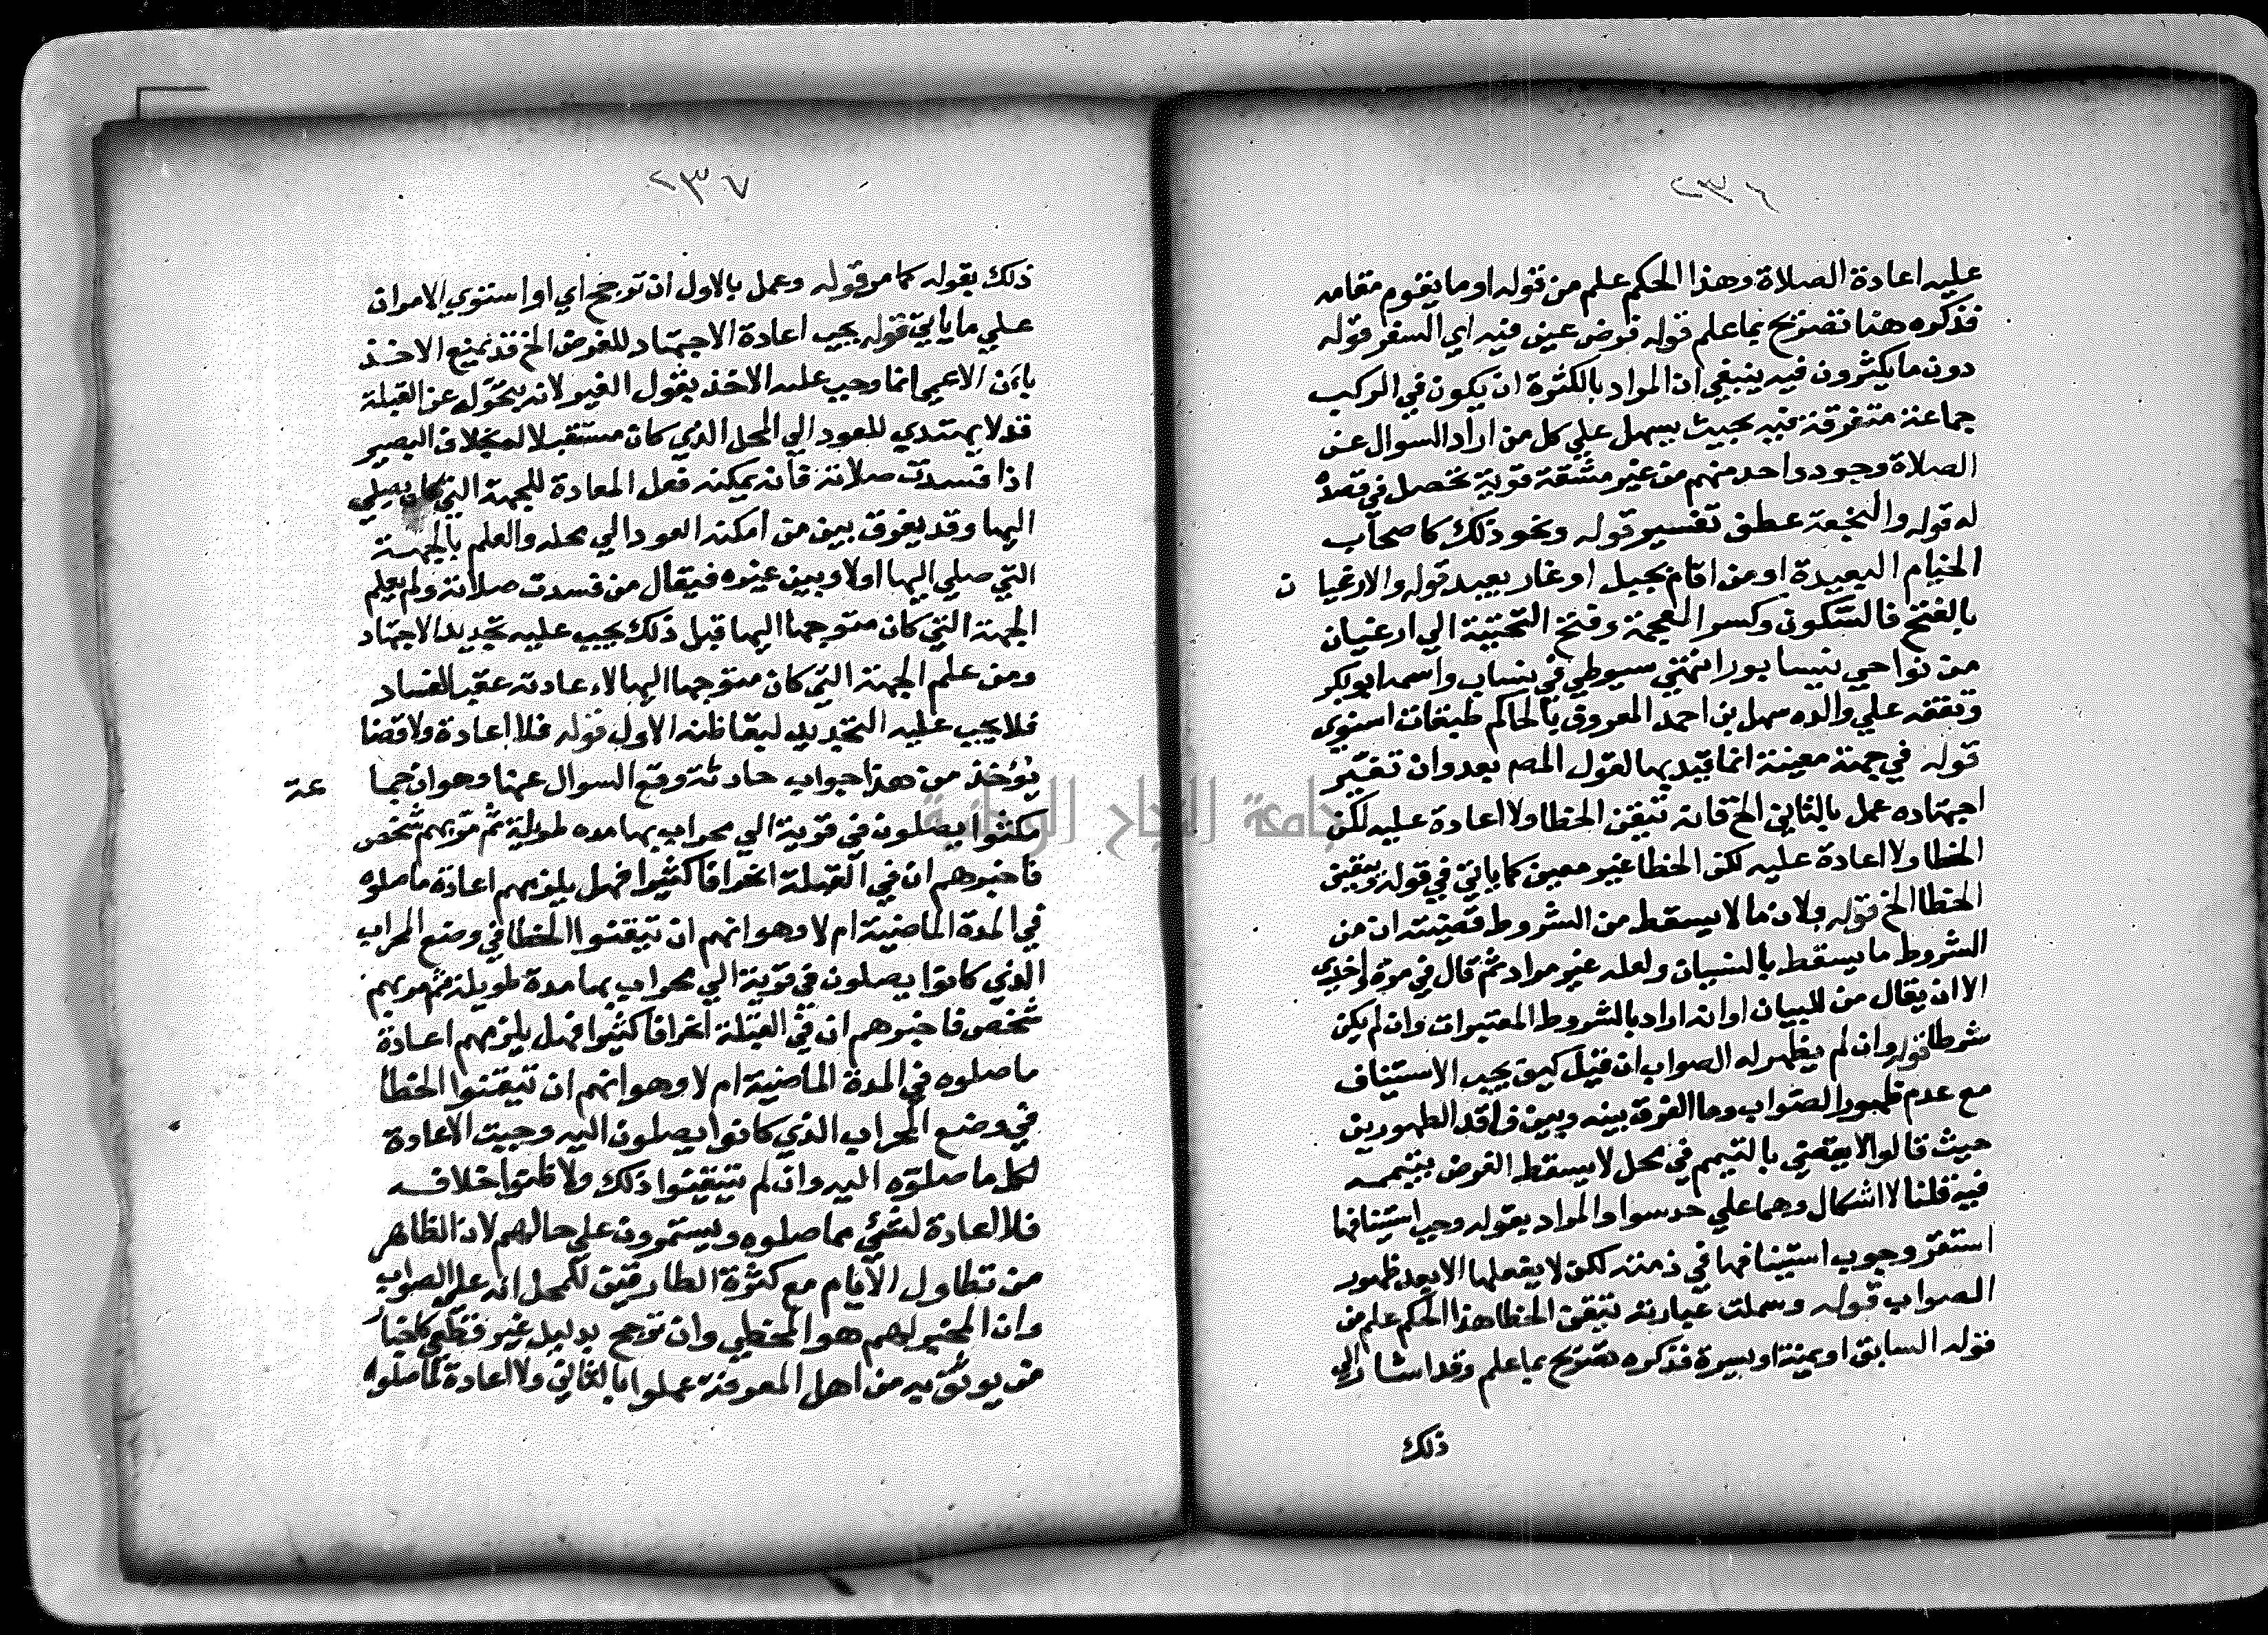 ٢٣٦
عليه اعادة الصلاة وهذا الحكم علم من قوله او ما يقوم مقامه
فذكره هنا تصريح بما علم قوله فرض عين فيه اي السفر قوله
دون ما يكثرون فيه ينبغي ان المراد بالكثرة ان يكون في الركب
جماعة متفرقة فيه بحيث يسهل علي كل من اراد السوال عن
الصلاة وجود واحد منهم من غير مشقة قوية تحصل في قصده
له قوله والنجعة عطف تفسير قوله ونحو ذلك كاصحاب
الخيام البعيدة او من اقام بجبل او غار بعيد قوله والارغيا ن
بالفتح فالسكون وكسر المعجمة وفتح التحتية الي ارغيان
من نواحي نيسابور انتهي سيوطي في نساب واسمه ابو بكر
وتفقه علي والده سهل بن احمد المعروف بالحاكم طبقات اسنوي
قوله في جهة معينة انما قيد بها لقول المص بعد وان تغير
اجتهاده عمل بالثاني الخ فانه تيقن الخطا ولا اعادة عليه لكن
الخطا ولا اعادة عليه لكن الخطا غير معين كما ياتي في قوله وتيقن
الخطا الخ قوله ولان ما لا يسقط من الشروط قضيته ان من
الشروط ما يسقط بالنسيان ولعله غير مراد ثم قال في مرة اخري
الا ان يقال من للبيان او انه اراد بالشروط المعتبرات وان لم يكن
شرطا قوله وان لم يظهر له الصواب ان قيل كيف يجب الاستيناف
مع عدم ظهور الصواب وما الفرق بينه وبين فاقد الطهورين
حيث قالوا لا يقضي بالتيمم في محل لا يسقط الفرض بتيممه
فيه قلنا لا اشكال وهما علي حد سوا والمراد بقوله وجب استينافها
استقر وجوب استينافها في ذمته لكن لا يفعلها الا بعد ظهور
الصواب قوله وسملت عبارته تيقن الخطا هذا الحكم علم من
قوله السابق او يمنة او يسرة فذكره تصريح بما علم وقد اشار الي
ذلك
٢٣٧
ذلك بقوله كما مر قوله وعمل بالاول ان ترجح اي او استوي الامران
علي ما ياتي قوله يجب اعادة الاجتهاد للفرض الخ قد يمنع الاخذ
بان الاعمي انما وجب عليه الاخذ بقول الغير لانه بتحوله عن القبلة
قد لا يهتدي للعود الي المحل الذي كان مستقبلا له بخلاف البصير
اذا فسدت صلاته فانه يمكنه فعل المعادة للجهة التي كان يصلي
اليها وقد يفرق بين من امكنه العود الي محله والعلم بالجهة
التي صلي اليها اولا وبين غيره فيقال من فسدت صلاته ولم يعلم
الجهة التي كان متوجها اليها قبل ذلك يجب عليه تجديد الاجتهاد
ومن علم الجهة التي كان متوجها اليها لاعادته عقب الفساد
فلا يجب عليه التجديد لبقا ظنه الاول قوله فلا اعادة ولا قضا
يؤخذ من هذا جواب حادثة وقع السوال عنها وهو ان جما عة
مكثوا يصلون في قرية الي محراب بها مده طويلة ثم مر بهم شخص
فاخبرهم ان في القبلة انحرافا كثيرا فهل يلزمهم اعادة ما صلوه
في المدة الماضية ام لا وهو انهم ان تيقنوا الخطا في وضع المحراب
الذي كانوا يصلون في قرية الي محراب بها مدة طويلة ثم مر بهم
شخص فاخبرهم ان في القبلة انحرافا كثيرا فهل يلزمهم اعادة
ما صلوه في المدة الماضية ام لا وهو انهم ان تيقنوا الخطا
في وضع المحراب الذي كانوا يصلون اليه وجبت الاعادة
لكل ما صلوه اليه وان لم يتيقنوا ذلك ولا ظنوا خلافه
فلا اعادة لشئ مما صلوه ويستمرون علي حالهم لان الظاهر
من تطاول الايام مع كثرة الطارقين للمحل انه علي الصواب
وان المخبر لهم هو المخطي وان ترجح بدليل غير قطعي كاخبار
من يوثق به من اهل المعرفة عملوا بالثاني ولا اعادة لما صلوه
جامعة النجاح الوطنية